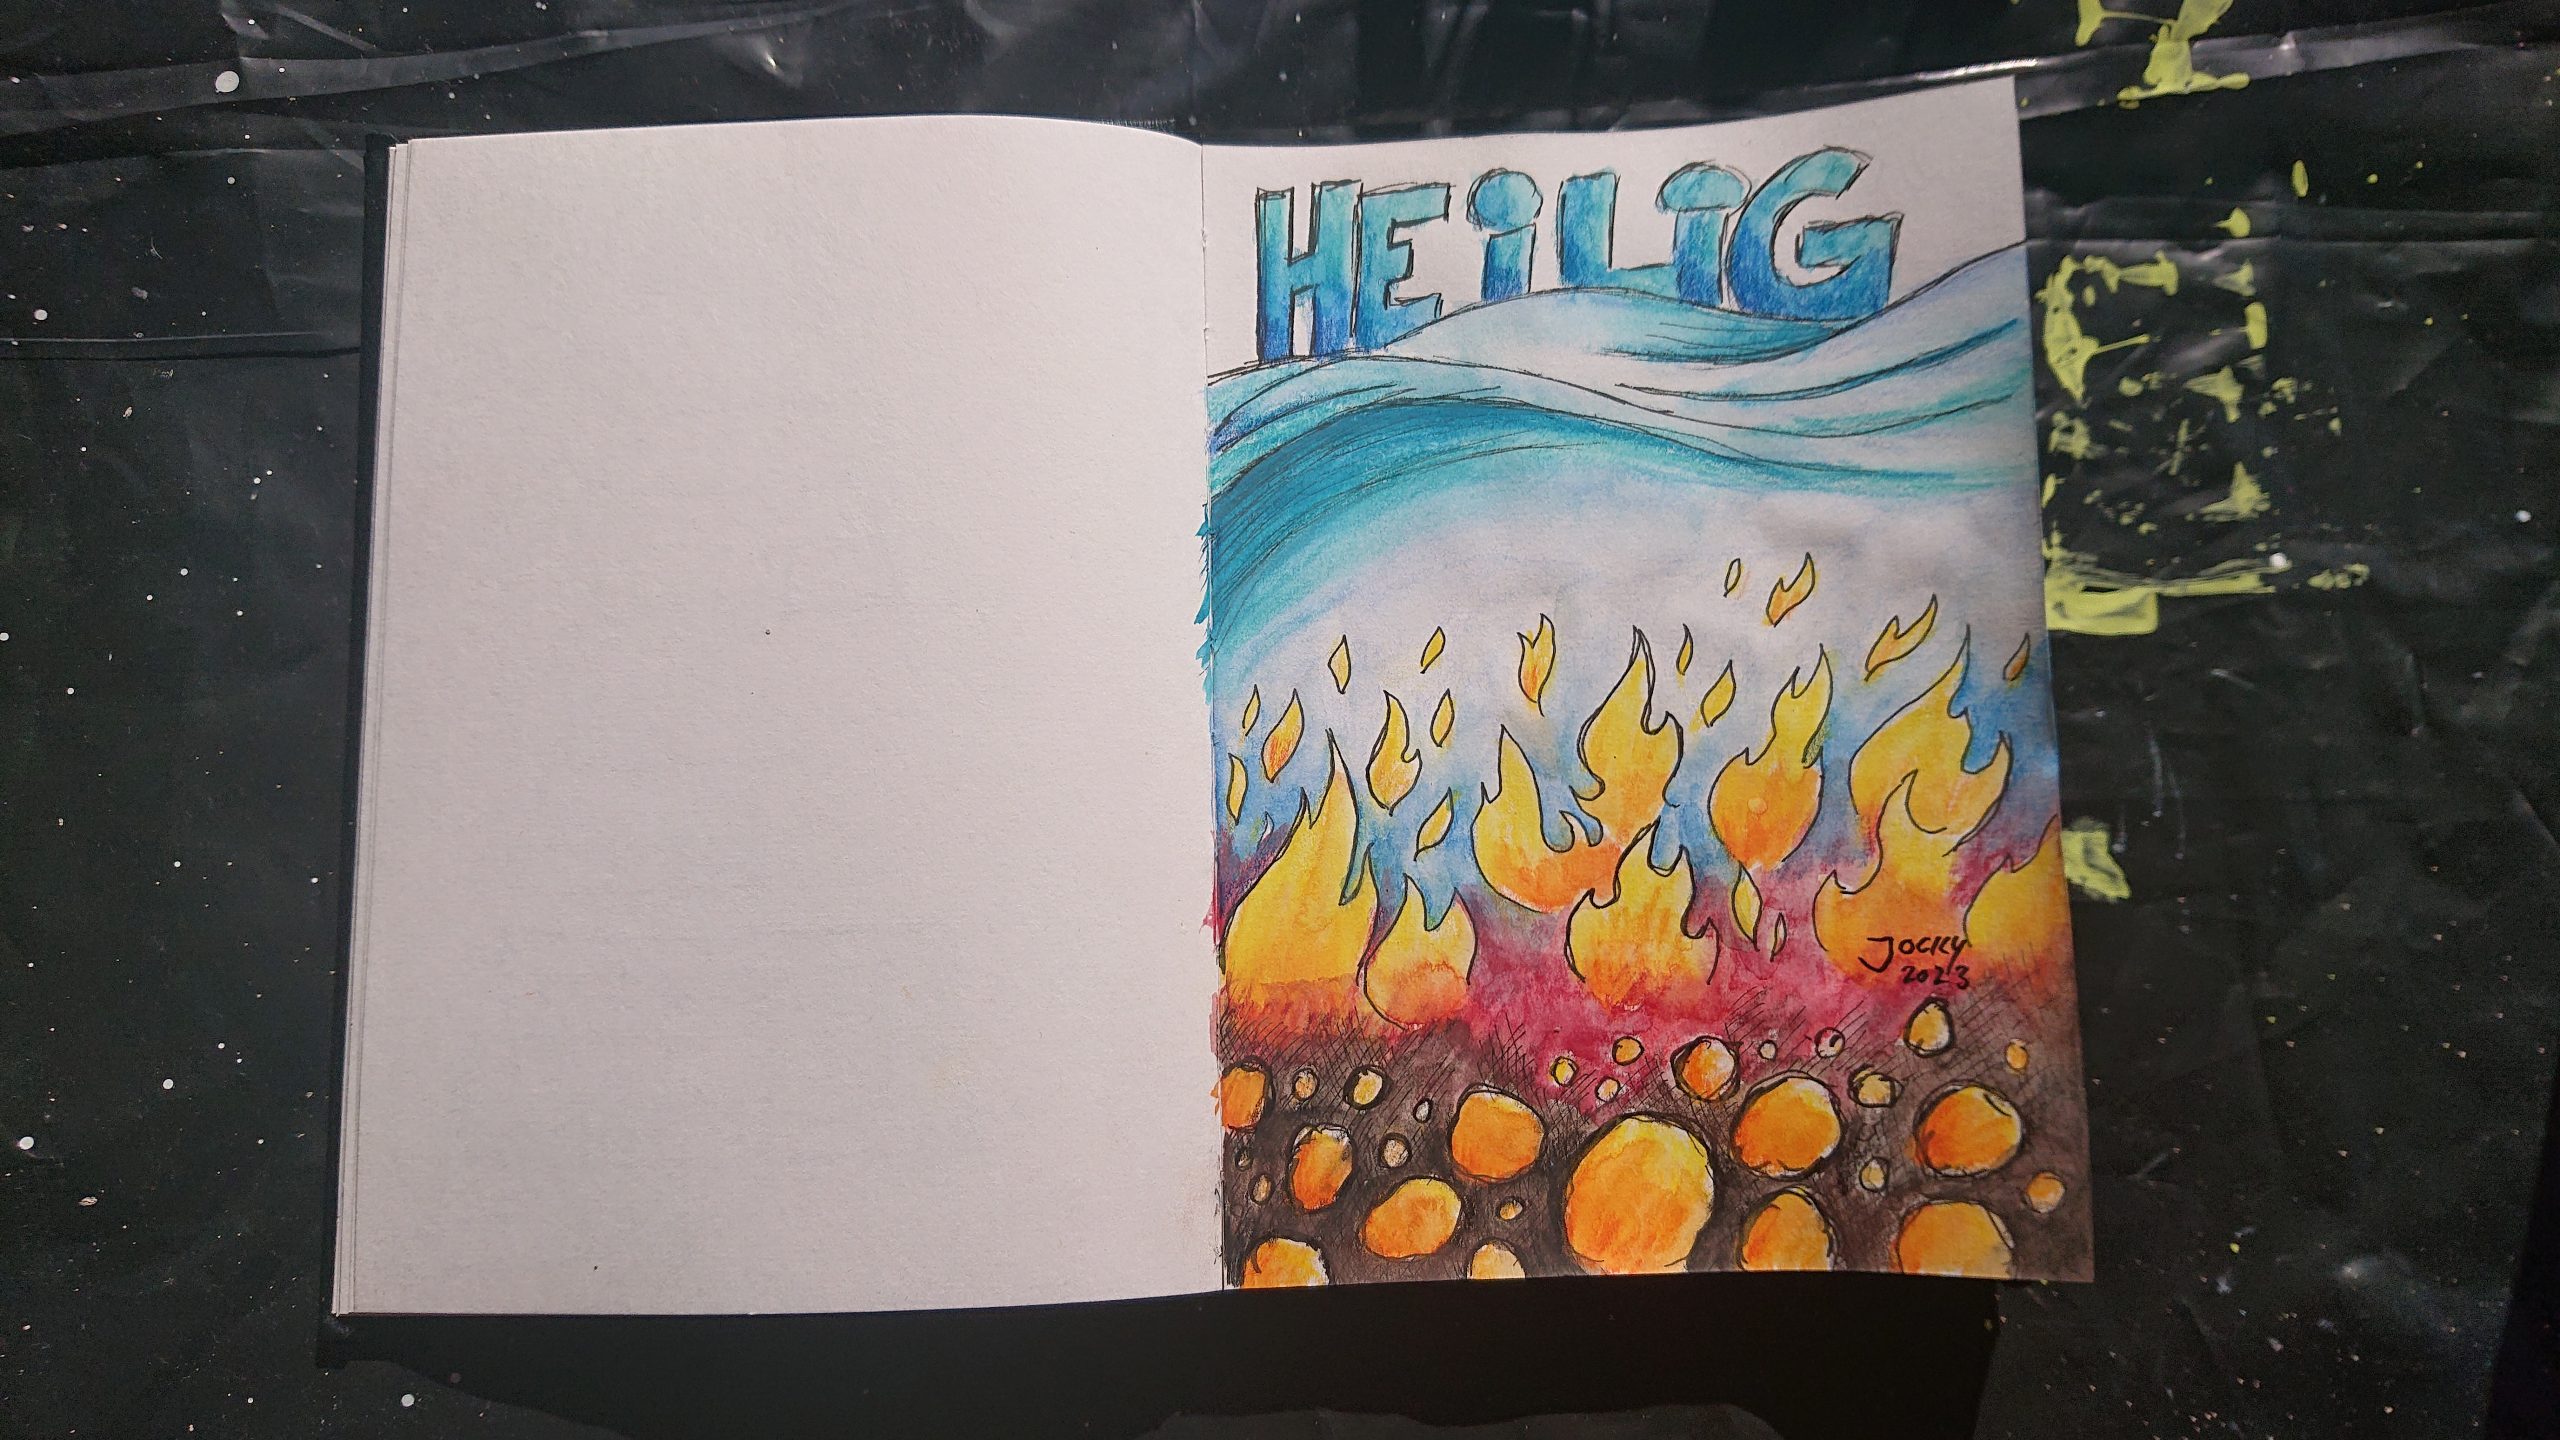 HEiLiG
JOCKY
2023